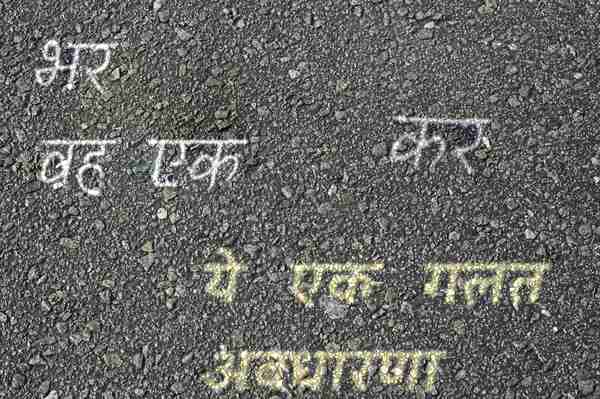 भर
वह एक
कर
ये एक गलत
अवधारणा